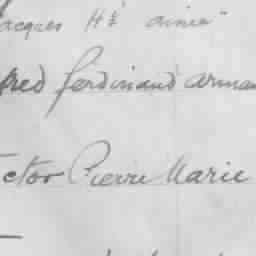 Jacques Hé aimée
fred ferdinand arman
ctor Pierre Marie